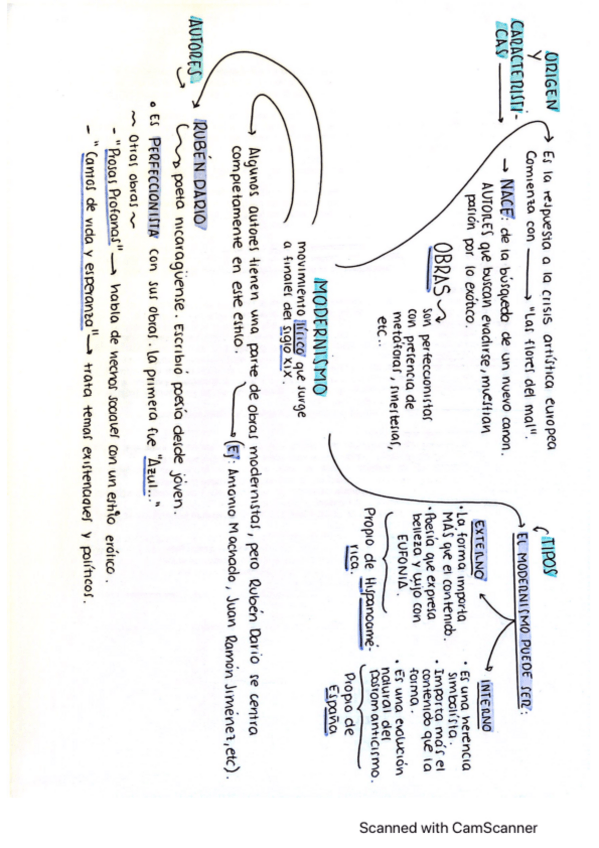 ORIGEN
Y
CARACTERISTI-
CAS
Es la respuesta a la crisis artística europea
Comienza con → "Las flores del mal".
→ NACE: de la búsqueda de un nuevo canon.
AUTORES que buscan evadirse, muestran
pasión por lo exótico.
OBRAS
son perfeccionistas
con presencia de
metáforas, sinestesias,
etc...
TIPOS
EL MODERNISMO PUEDE SER:
EXTERNO
• La forma importa
MÁS que el contenido.
• Poesía que expresa
belleza y lujo con
EUFONIA.
Propio de Hispanoamé-
rica.
INTERNO
• Es una herencia
simbolista.
• Importa más el
contenido que la
forma.
• Es una evolución
natural del
posromanticismo.
Propio de
España
MODERNISMO
movimiento lírico que surge
a finales del siglo XIX.
→ Algunos autores tienen una parte de obras modernistas, pero Rubén Darío se centra
completamente en este estilo.
(Ej: Antonio Machado, Juan Ramón Jiménez, etc).
AUTORES
RUBÉN DARÍO
poeta nicaragüense. Escribió poesía desde joven.
• Es PERFECCIONISTA con sus obras. La primera fue "Azul..."
~ Otras obras ~
- "Prosas Profanas" → habla de hechos                  con un estilo erótico.
- "Cantos de vida y esperanza" → trata temas existenciales y políticos.
Scanned with CamScanner